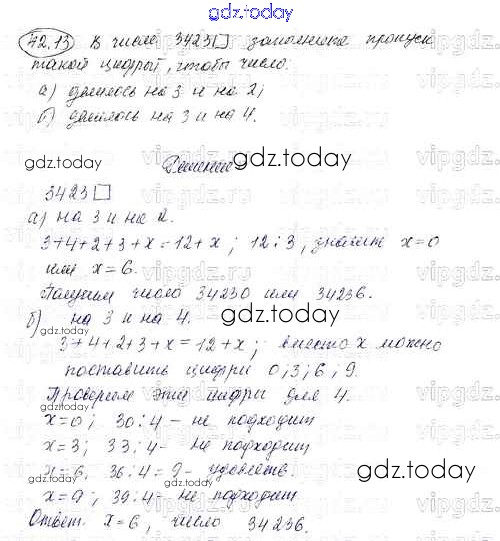 gdz.today
42.13 В числе 3423□ заполните пропуск
такой цифрой, чтобы число:
а) делилось на 3 и на 2;
б) делилось на 3 и на 4.
gdz.today
Решение
gdz.today
3423□
а) на 3 и на 2.
3+4+2+3+x=12+x; 12:3, значит x=0
или x=6.
Получим число 34230 или 34236.
б) на 3 и на 4.
3+4+2+3+x=12+x; вместо x можно
поставить цифры 0; 3; 6; 9.
Проверяем эти цифры для 4.
gdz.today
x=0; 30:4 - не подходит
x=3; 33:4 - не подходит
x=6, 36:4=9 - удовлетв.
gdz.today
x=9; 39:4 - не подходит
Ответ. x=6, число 34236.
gdz.today